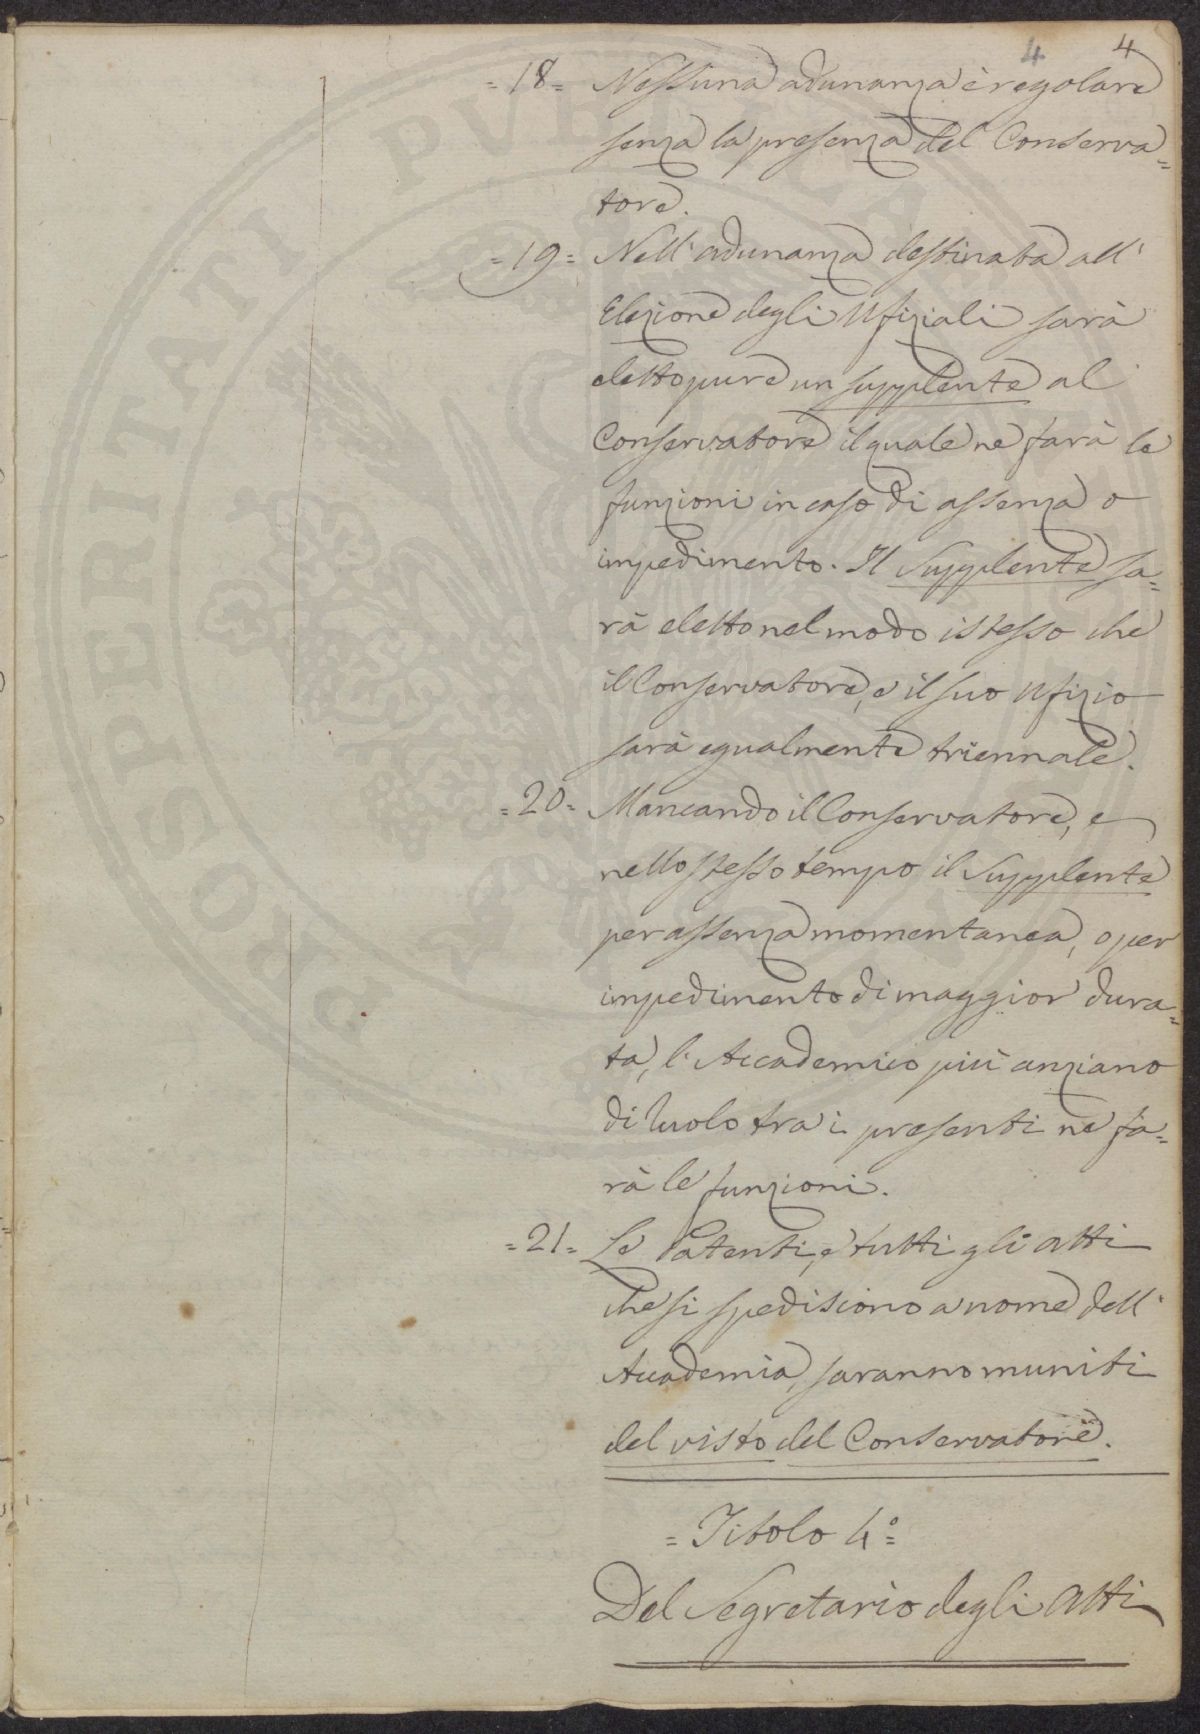 4 4
=18= Nessuna adunanza è regolare
senza la presenza del Conserva=
tore.
=19= Nell'adunanza destinata all'
Elezione degli Ufiziali sarà
eletto pure un supplente al
Conservatore il quale ne farà le
funzioni in caso di assenza o
impedimento. Il Supplente sa=
rà eletto nel modo istesso che
il Conservatore, e il suo Ufizio
sarà egualmente triennale.
=20= Mancando il Conservatore, e
nello stesso tempo il Supplente
per assenza momentanea, o per
impedimento di maggior dura=
ta, l'Accademico più anziano
di Ruolo tra i presenti ne fa=
rà le funzioni.
=21= Le Patenti, e tutti gli atti
che si spediscono a nome dell'
Accademia, saranno muniti
del visto del Conservatore.
=Titolo 4.°=
Del Segretario degli Atti
PROSPERITATI PVBLICAE